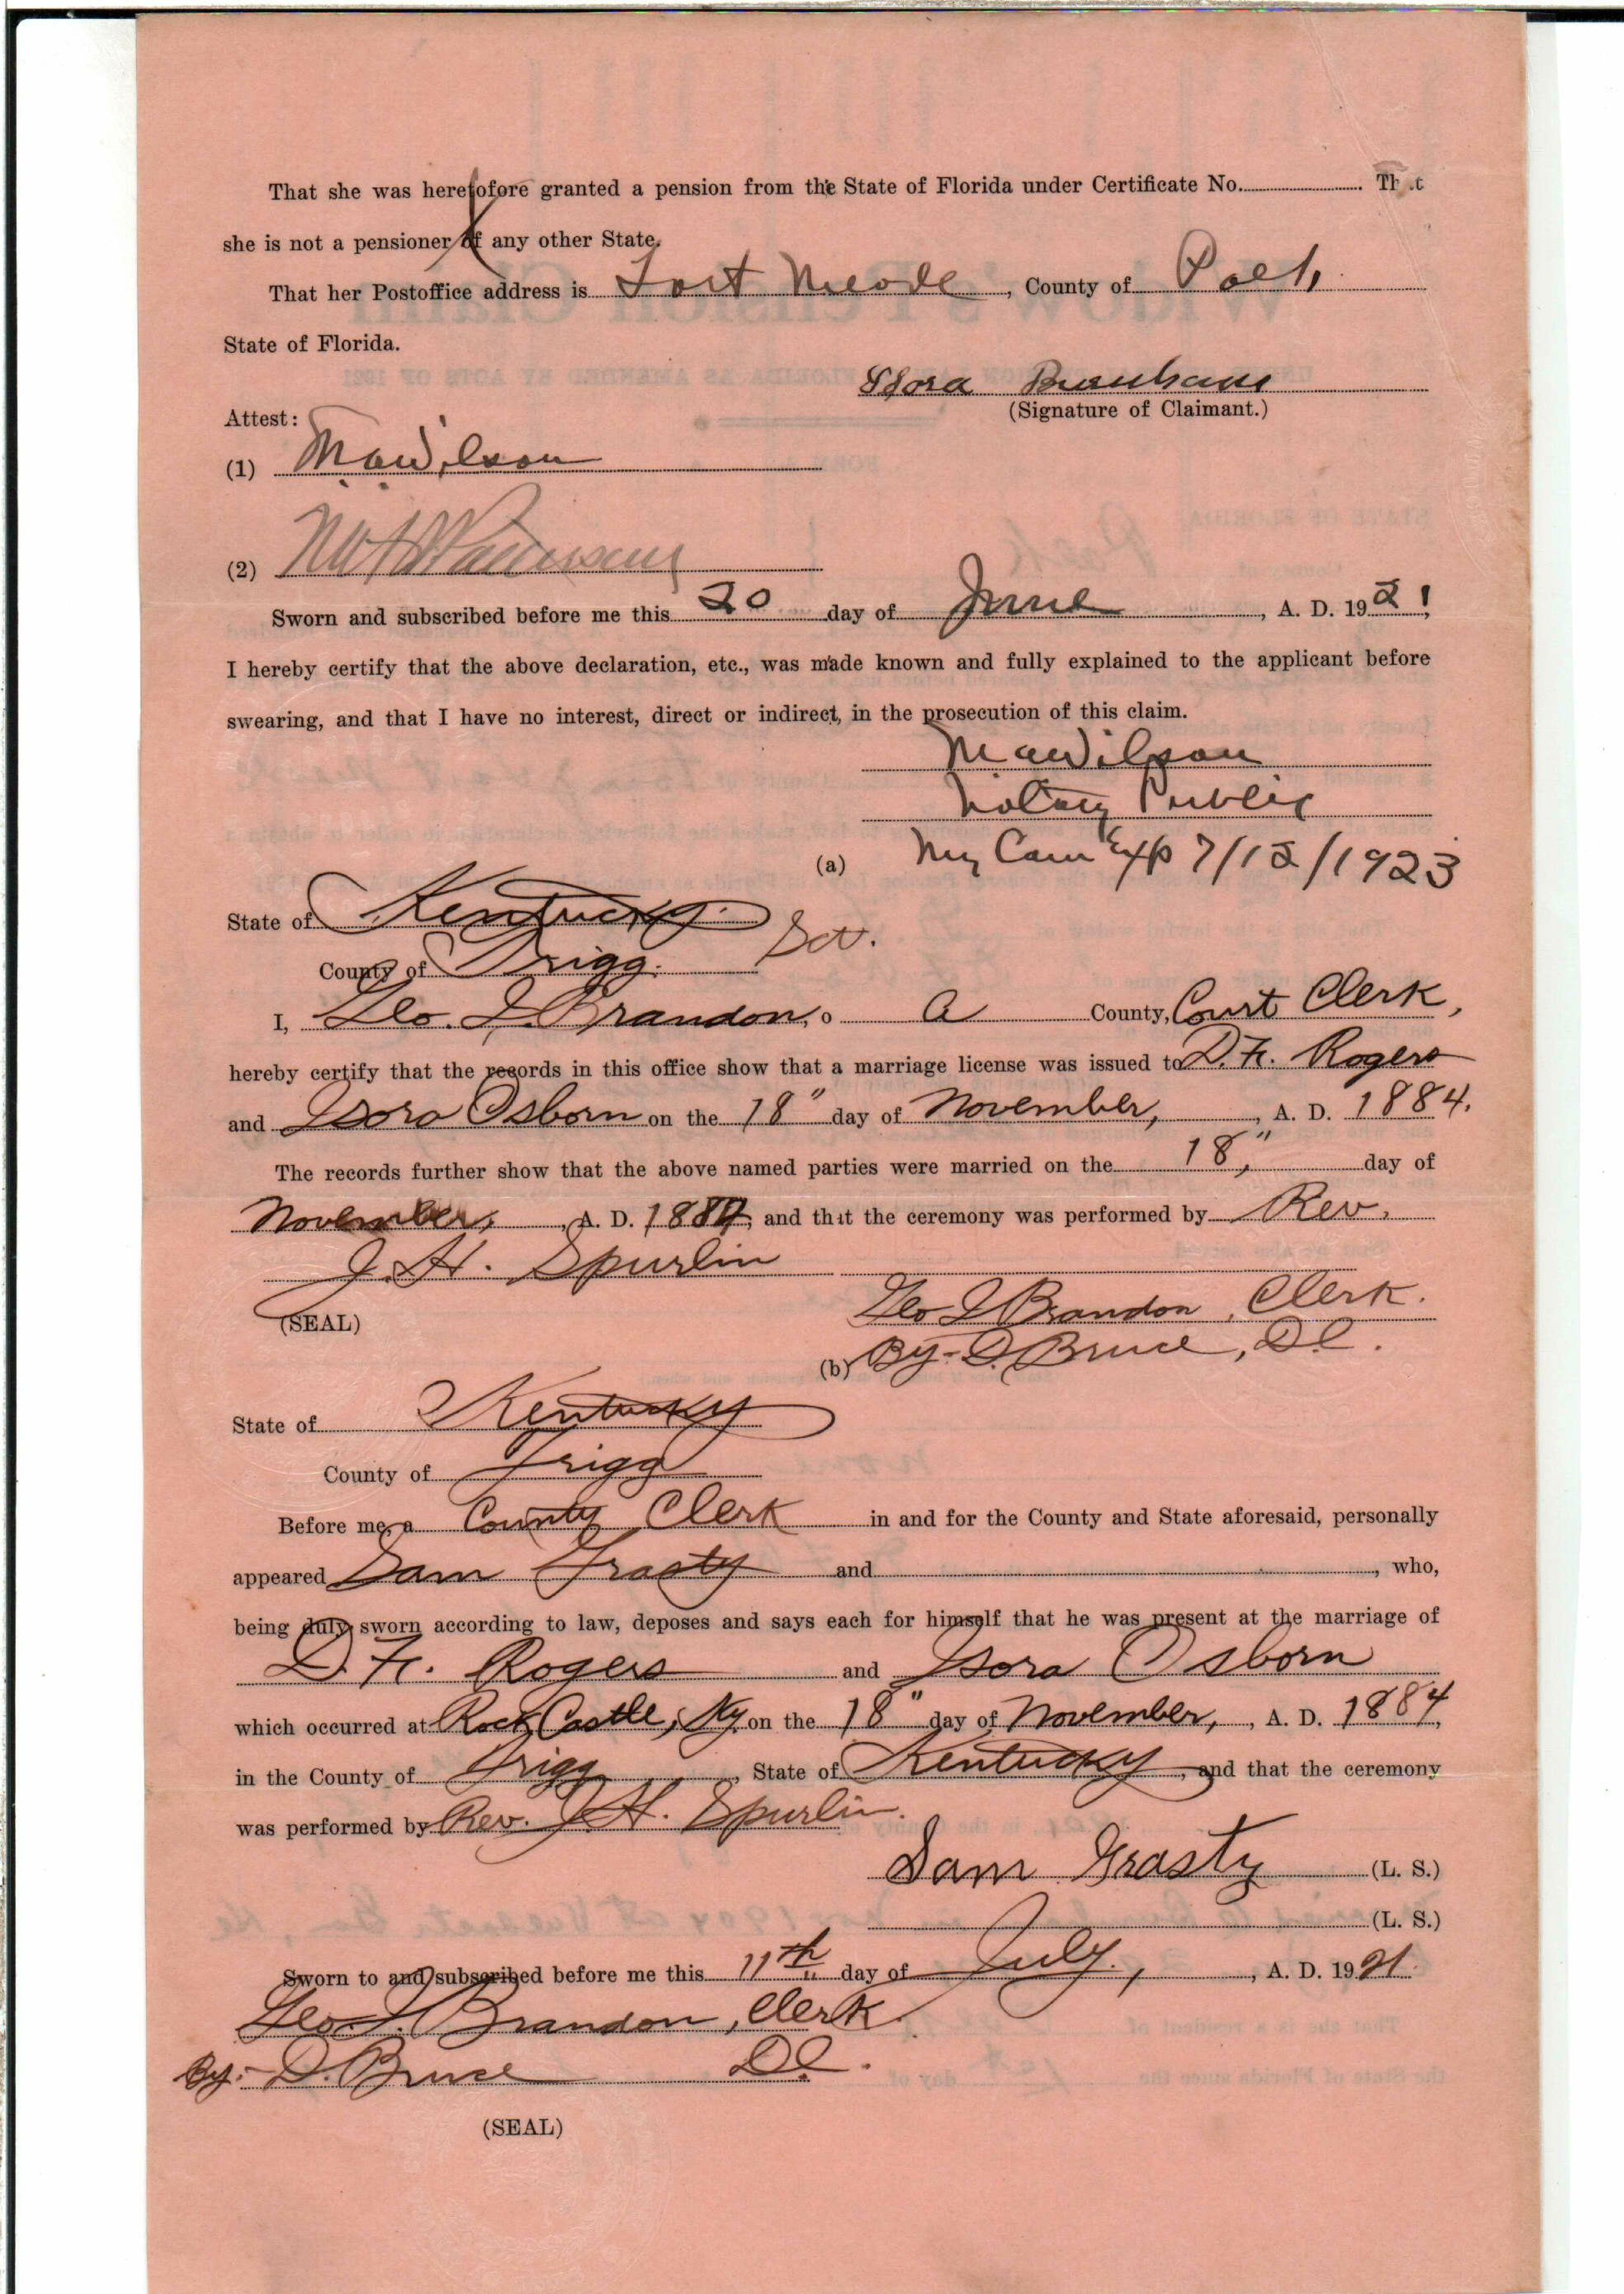 That she was heretofore granted a pension from the State of Florida under Certificate No. That
she is not a pensioner of any other State.
That her Postoffice address is Fort Meade, County of Polk
State of Florida.
Isora
(Signature of Claimant.)
Attest:
(1) M A Wilson
(2)
Sworn and subscribed before me this 20 day of June, A. D. 1921,
I hereby certify that the above declaration, etc., was made known and fully explained to the applicant before
swearing, and that I have no interest, direct or indirect, in the prosecution of this claim.
M A Wilson
Notary Public
(a) My Com Exp 7/12/1923
State of Kentucky.
County of Trigg. Sct.
I, Geo. J. Brandon, o a County, Court Clerk,
hereby certify that the records in this office show that a marriage license was issued to D. F. Rogers
and Isora Osborn on the 18" day of November, A. D. 1884.
The records further show that the above named parties were married on the 18," day of
November, A. D. 1884, and that the ceremony was performed by Rev.
J. H. Spurlin
(SEAL)
Geo J Brandon, Clerk.
(b) By- D. Bruce, D.C.
State of Kentucky
County of Trigg
Before me, a County Clerk in and for the County and State aforesaid, personally
appeared Sam Grasty and , who,
being duly sworn according to law, deposes and says each for himself that he was present at the marriage of
D. F. Rogers and Isora Osborn
which occurred at Rock Castle, Ky. on the 18" day of November, A. D. 1884,
in the County of Trigg, State of Kentucky, and that the ceremony
was performed by Rev. J. H. Spurlin.
Sam Grasty (L. S.)
(L. S.)
Sworn to and subscribed before me this 11th day of July, A. D. 1921.
Geo. J. Brandon, Clerk.
By:- D. Bruce D.C.
(SEAL)